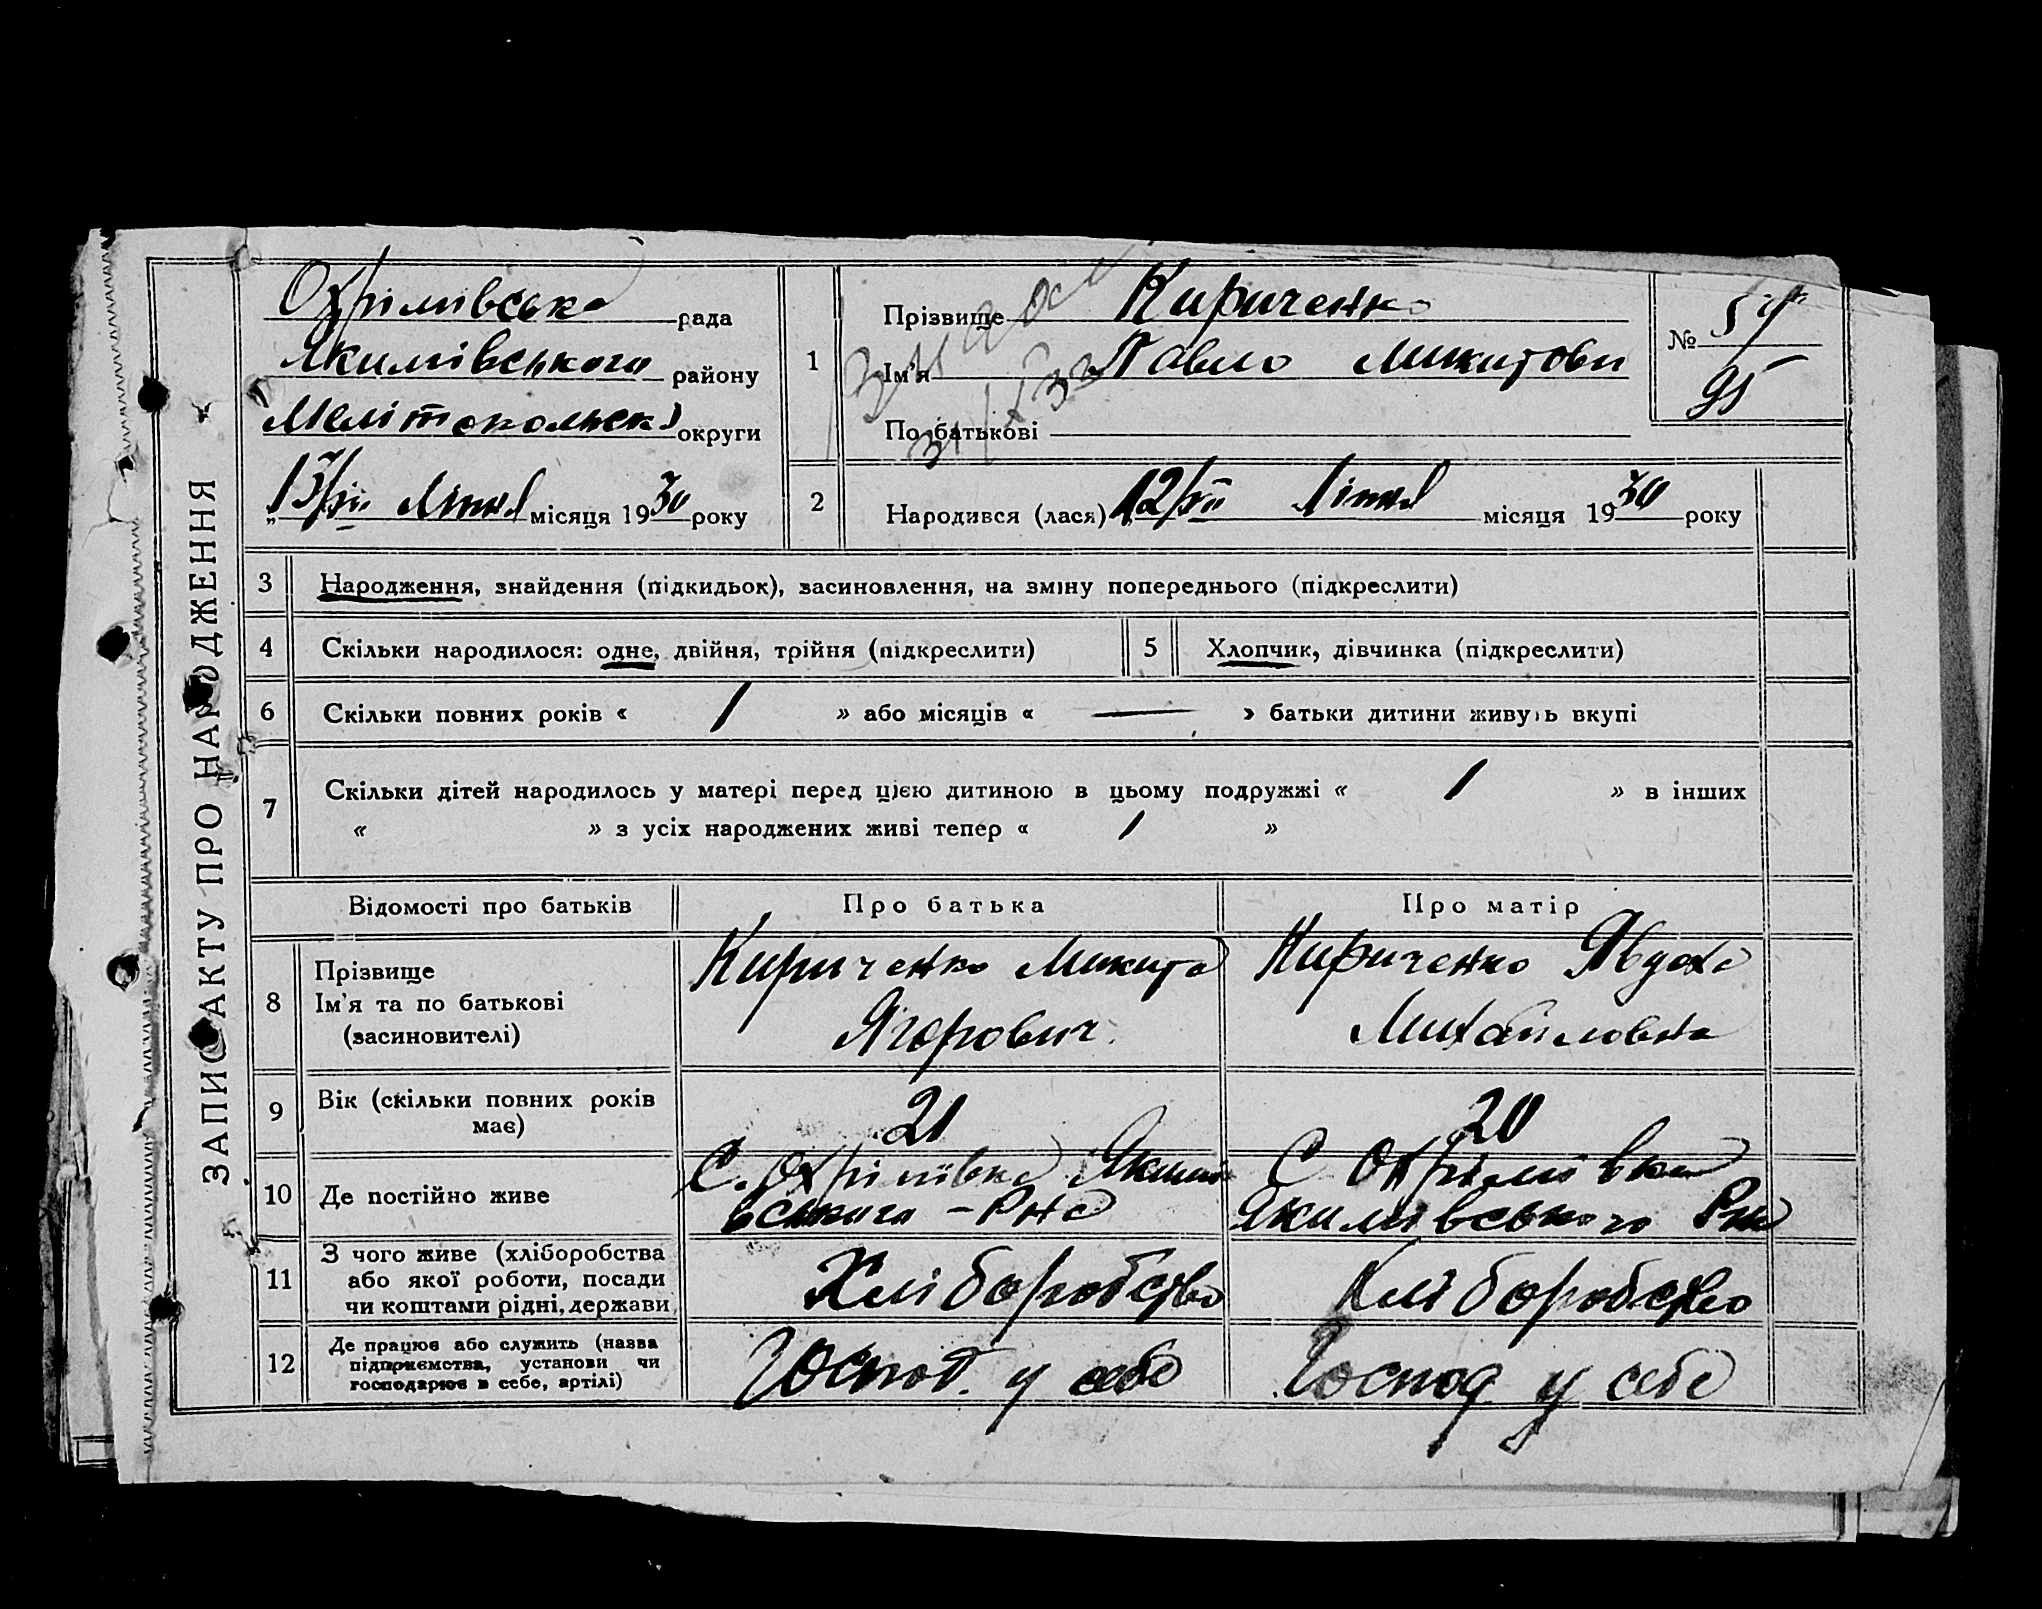 ЗАПИС АКТУ ПРО НАРОДЖЕННЯ
Охрімівська рада
Якимівського району
Мелітопольськ округи
„13/VII Липня місяця 1930 року
1
Прізвище Кириченко
Ім'я Павло Микитови
По батькові
№ 54
95
2
Народився (лася) 12/VII Липня місяця 1930 року
3 Народження, знайдення (підкидьок), засиновлення, на зміну попереднього (підкреслити)
4 Скільки народилося: одне, двійня, трійня (підкреслити) 5 Хлопчик, дівчинка (підкреслити)
6 Скільки повних років « 1 » або місяців « — » батьки дитини живуть вкупі
7 Скільки дітей народилось у матері перед цією дитиною в цьому подружжі « 1 » в інших
« » з усіх народжених живі тепер « 1 »
Відомості про батьків Про батька Про матір
8 Прізвище
Ім'я та по батькові
(засиновителі)
Кириченко Микита
Ягорович
Кириченко Явдоха
Михайловна
9 Вік (скільки повних років
має)
21
20
10 Де постійно живе
С. Охрімівка Якимі
вського – Рна
С Охрімівка
Якимівського Рна
11 З чого живе (хліборобства
або якої роботи, посади
чи коштами рідні, держави
Хліборобство
Хліборобство
12 Де працює або служить (назва
підприємства, установи чи
господарює в себе, артілі)
Господ. у себе
Господ у себе